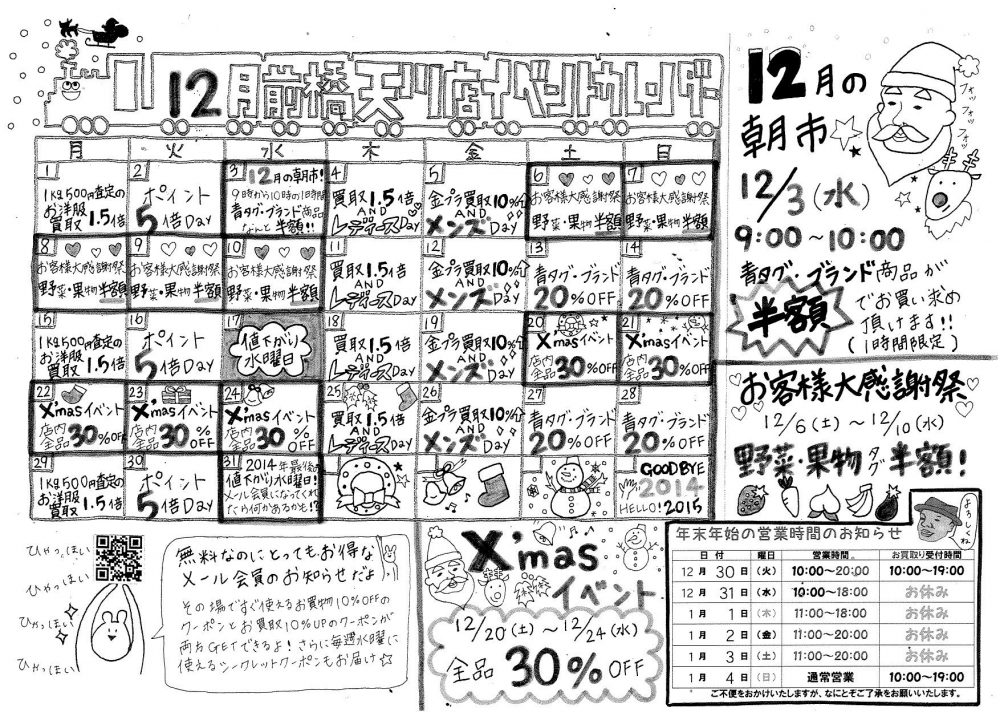 12月前橋天川店イベントカレンダー
月 火 水 木 金 土 日
1
1kg500円査定の
お洋服
買取1.5倍
2
ポイント
5倍Day
3
12月の朝市!
9時から10時の1時間
青タグ・ブランド商品
なんと半額!!
4
買取1.5倍
AND
レディースDay
5
金プラ買取10%
AND
メンズDay
6
お客様大感謝祭
野菜・果物半額
7
お客様大感謝祭
野菜・果物半額
8
お客様大感謝祭
野菜・果物半額
9
お客様大感謝祭
野菜・果物半額
10
お客様大感謝祭
野菜・果物半額
11
買取1.5倍
AND
レディースDay
12
金プラ買取10%
AND
メンズDay
13
青タグ・ブランド
20%OFF
14
青タグ・ブランド
20%OFF
15
1kg500円査定の
お洋服
買取1.5倍
16
ポイント
5倍Day
17
値下がり
水曜日
18
買取1.5倍
AND
レディースDay
19
金プラ買取10%
AND
メンズDay
20
X'masイベント
店内全品30%OFF
21
X'masイベント
店内全品30%OFF
22
X'masイベント
店内全品30%OFF
23
X'masイベント
店内全品30%OFF
24
X'masイベント
店内全品30%OFF
25
買取1.5倍
AND
レディースDay
26
金プラ買取10%
AND
メンズDay
27
青タグ・ブランド
20%OFF
28
青タグ・ブランド
20%OFF
29
1kg500円査定の
お洋服
買取1.5倍
30
ポイント
5倍Day
31
2014年最後の
値下がり水曜日!
メール会員になってくれ
たら何かがあるかも!?
GOODBYE
2014
HELLO!2015
12月の
朝市
フォッ
フォッ
フォッ
12/3(水)
9:00~10:00
青タグ・ブランド商品が
半額
でお買い求め
頂けます!!
(1時間限定)
お客様大感謝祭
12/6(土)~12/10(水)
野菜・果物タグ半額!
ひゃっほい
ひゃっほい
ひゃっほい
ひゃっほい
無料なのにとってもお得な
メール会員のお知らせだよ
その場ですぐ使えるお買物10%OFFの
クーポンとお買取10%UPのクーポンが
両方GETできるよ!さらに毎週水曜に
使えるシークレットクーポンもお届け☆
X'mas
イベント
12/20(土)~12/24(水)
全品30%OFF
よろしくね
年末年始の営業時間のお知らせ
日付 曜日 営業時間 お買取り受付時間
12月30日 (火) 10:00~20:00 10:00~19:00
12月31日 (水) 10:00~18:00 お休み
1月1日 (木) 11:00~18:00 お休み
1月2日 (金) 11:00~20:00 お休み
1月3日 (土) 11:00~20:00 お休み
1月4日 (日) 通常営業 10:00~19:00
ご不便をおかけいたしますが、なにとぞご了承をお願いいたします。